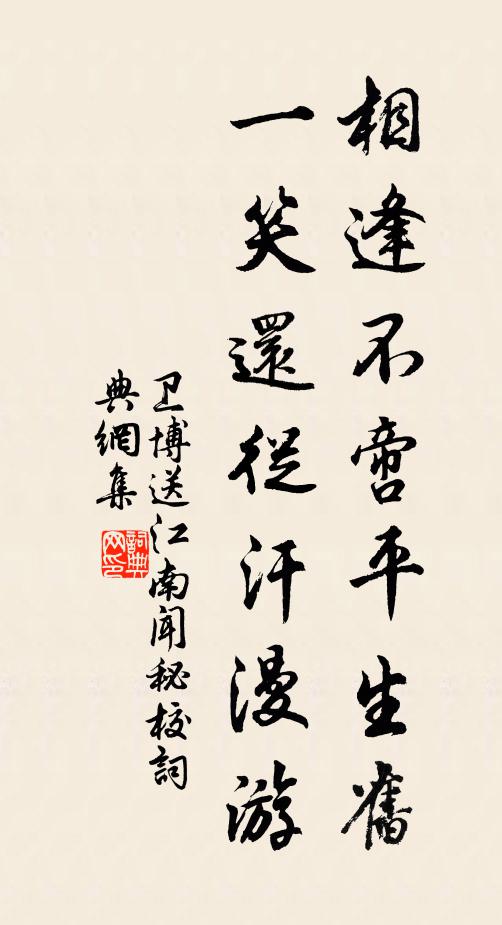 相逢不啻平生舊
一笑還從汗漫游
卫博送江南闻秘校詞
典網集
詞典
网印